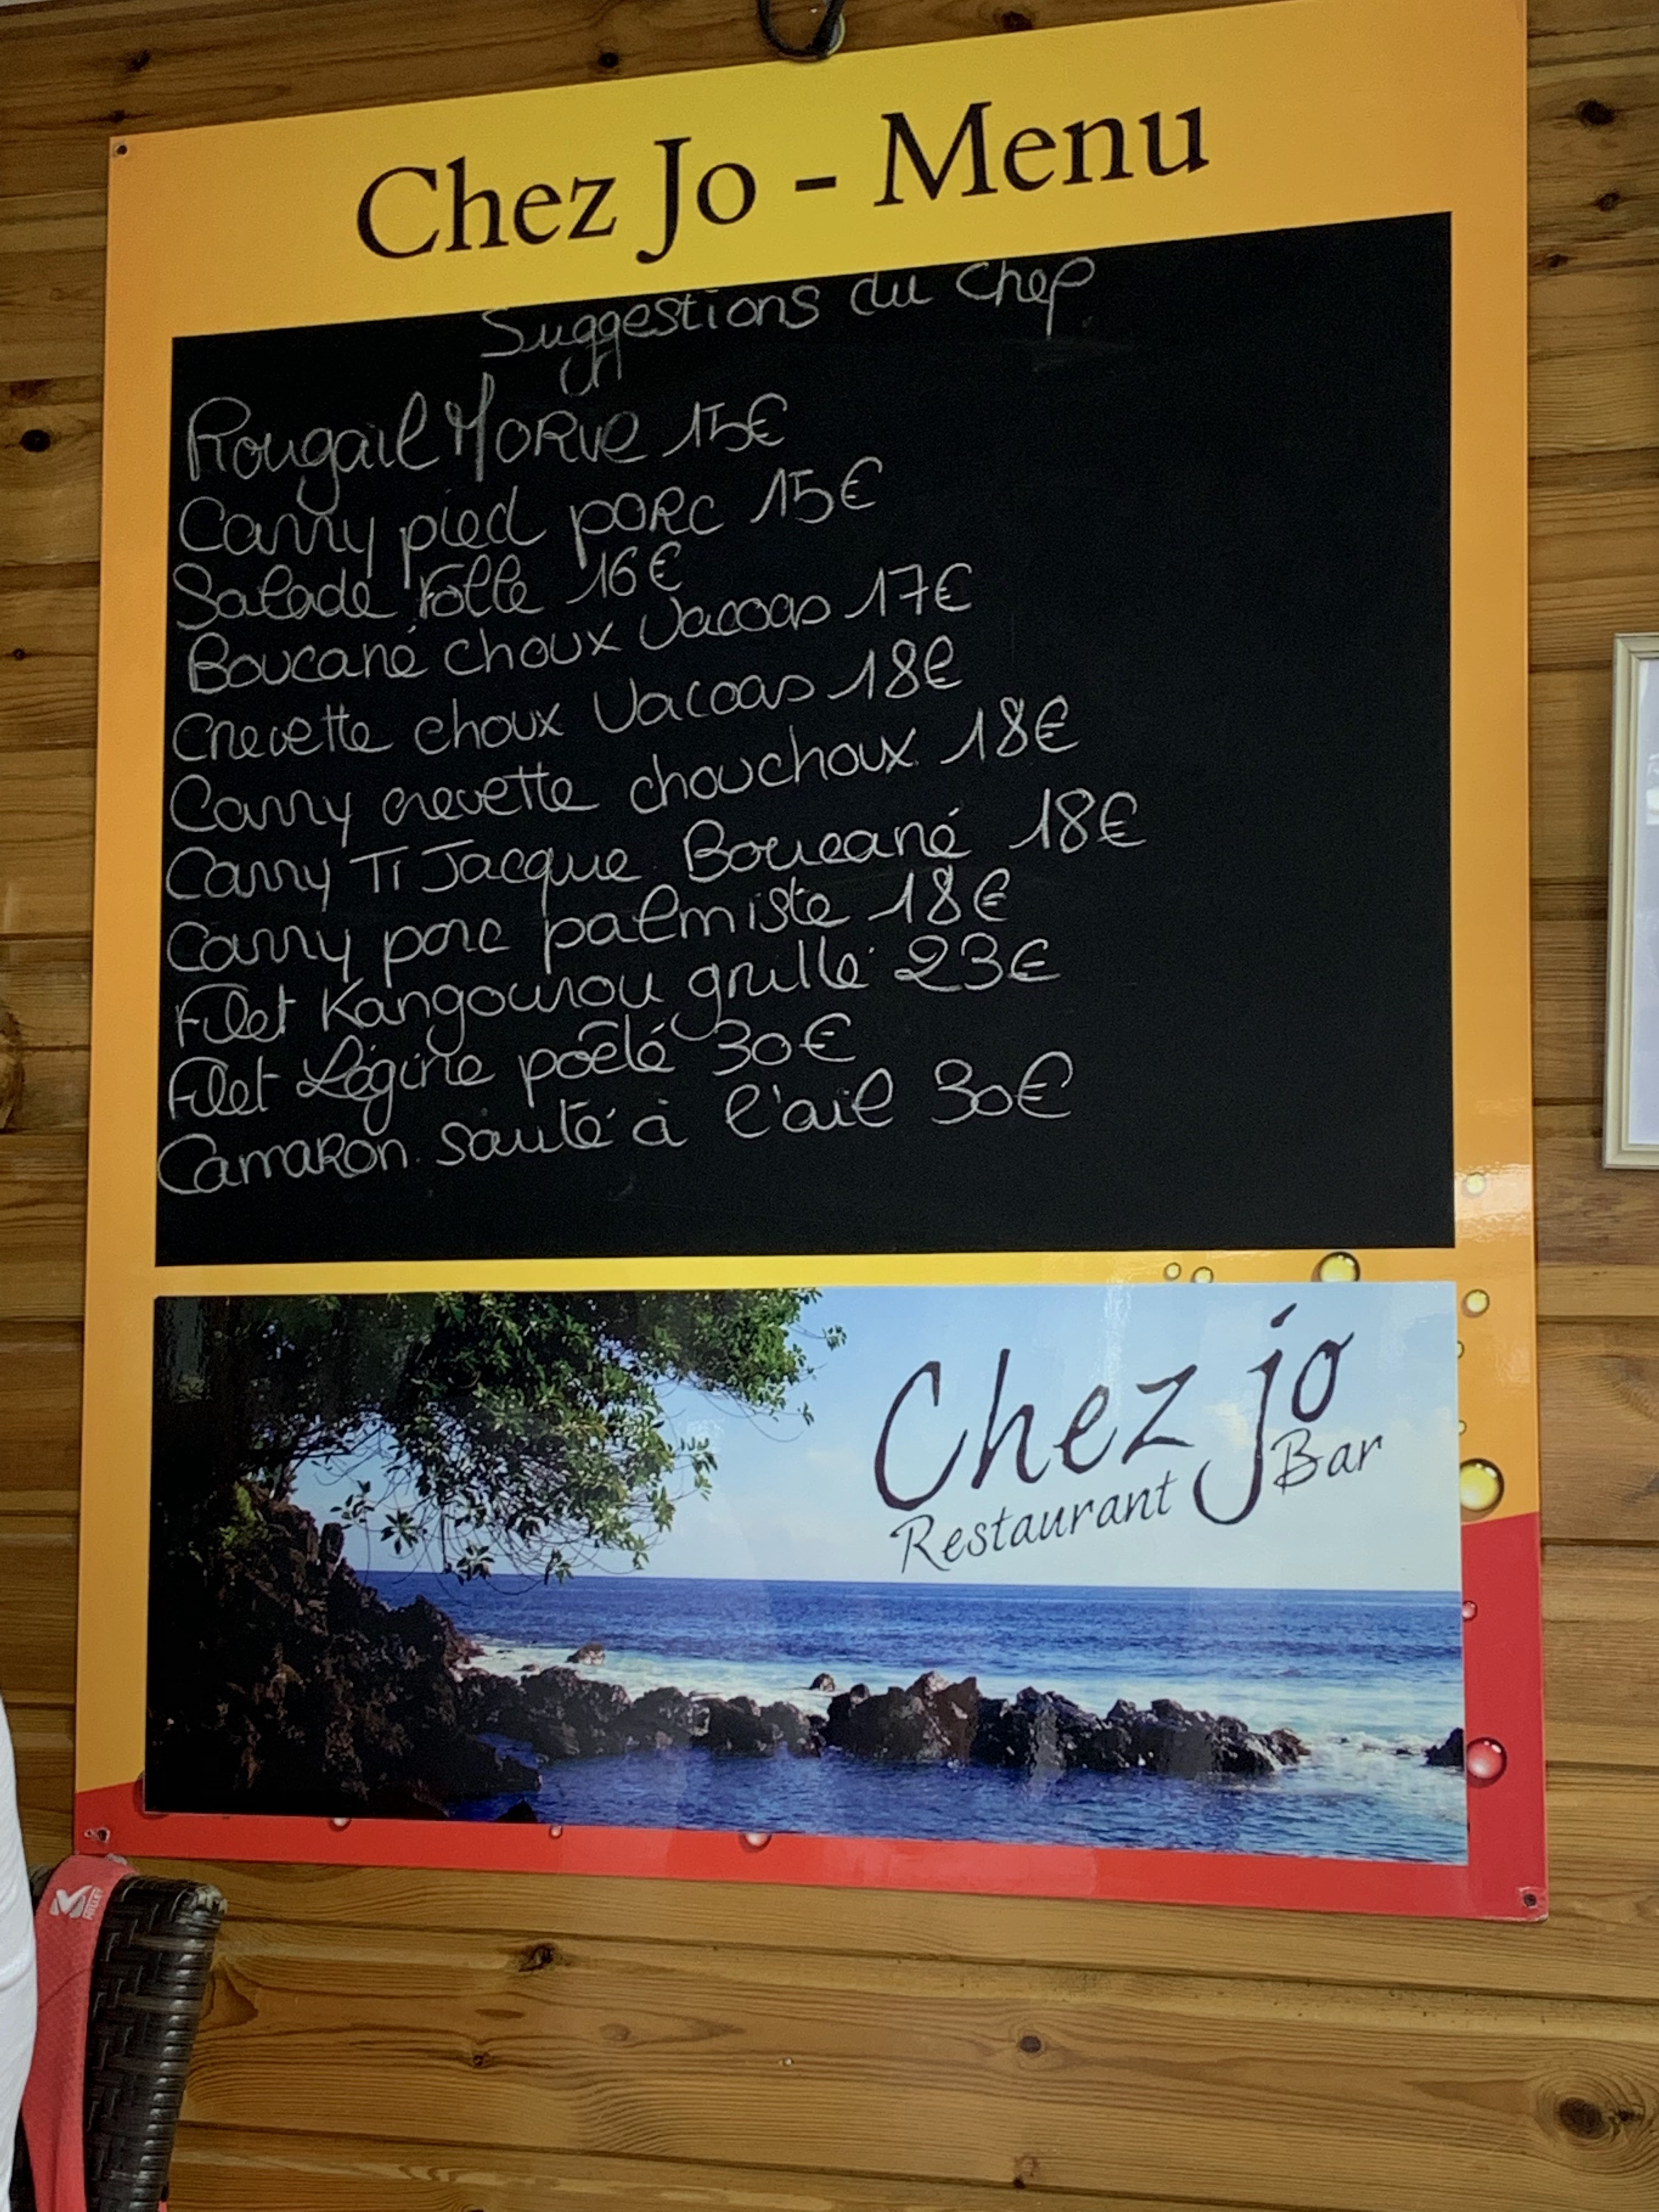 Chez Jo - Menu
Suggestions du Chef
Rougail MORUE 15€
Carry pied PORC 15€
Salade Folle 16€
Boucané choux Vacoas 17€
Crevette choux Vacoas 18€
Carry crevette chouchoux 18€
Carry Ti Jacque Boucané 18€
Carry porc palmiste 18€
Filet Kangourou grillé 23€
Filet Légine poêlé 30€
CamaRon sauté à l'ail 30€
Chez Jo
Restaurant Bar